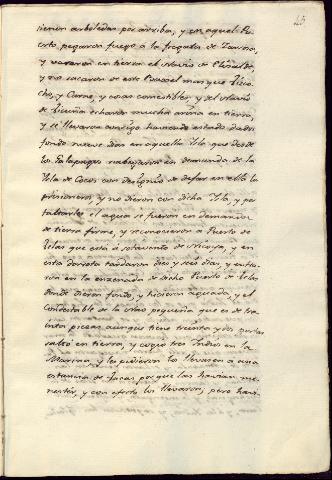 45
tienen arboledas por arriba, y en aquel Pu-
erto pegaron fuego a la fragata de
y vararon en tierra el Navio de
y no sacaron de este mas que
che, y Carne, y cosas comestibles, y del Navio
de echaron mucha arina en tierra,
y se llevaron consigo haviendo estado dados
fondo nueve dias en aquella Isla que desde
los Galapagos navegaron en demanda de la
Isla de Cocos con designio de dejar en ella los
prisioneros, y no dieron con dicha Isla, y por
faltarles el agua se fueron en demanda
de tierra firme, y reconocieron a Puerto de
Velas que está a sotavento de Nicoya, y en
esta derrota tardaron diez y seis dias, y entra-
ron en la ensenada de dicho Puerto de Velas
donde dieron fondo, y hicieron aguada, y el
Condestable de la Nao pequeña que es de tra-
inta piezas aunque tiene treinta y dos
saltó en tierra, y cogio tres Indios en la
Marina, y les pidieron los llevasen a una
estancia de Bacas porque las havian me-
nester, y con efecto los llevaron; pero havi-